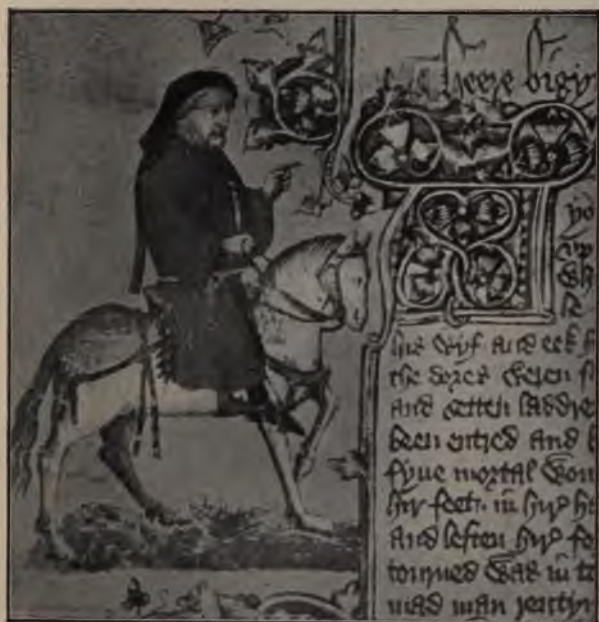 heere bigy
yo
his wyf and eek
the dores weren
And setten laddre
been entred and
fyue mortal wou
hir feet in hir
And leften hir fo
tourned was in
mad man rentyn